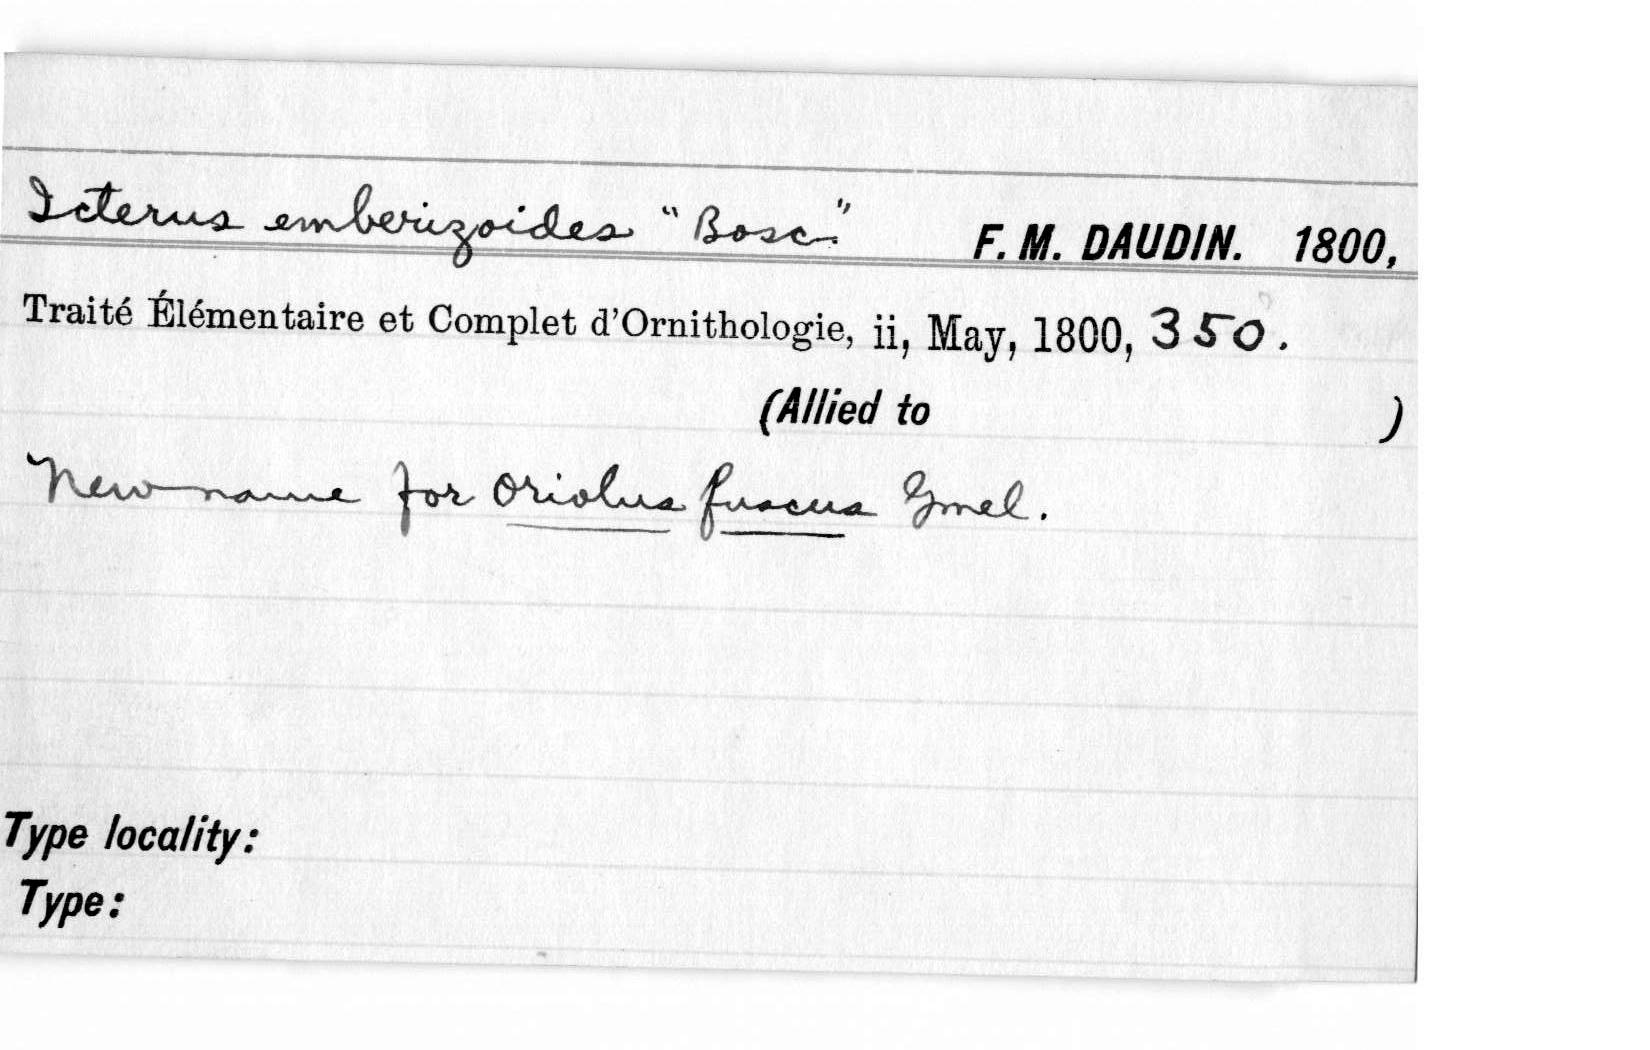 Icterus emberizoides "Bosc." F. M. DAUDIN. 1800,
Traité Élémentaire et Complet d'Ornithologie, ii, May, 1800, 350.
(Allied to )
New name for Oriolus fuscus Gmel.
Type locality:
Type: